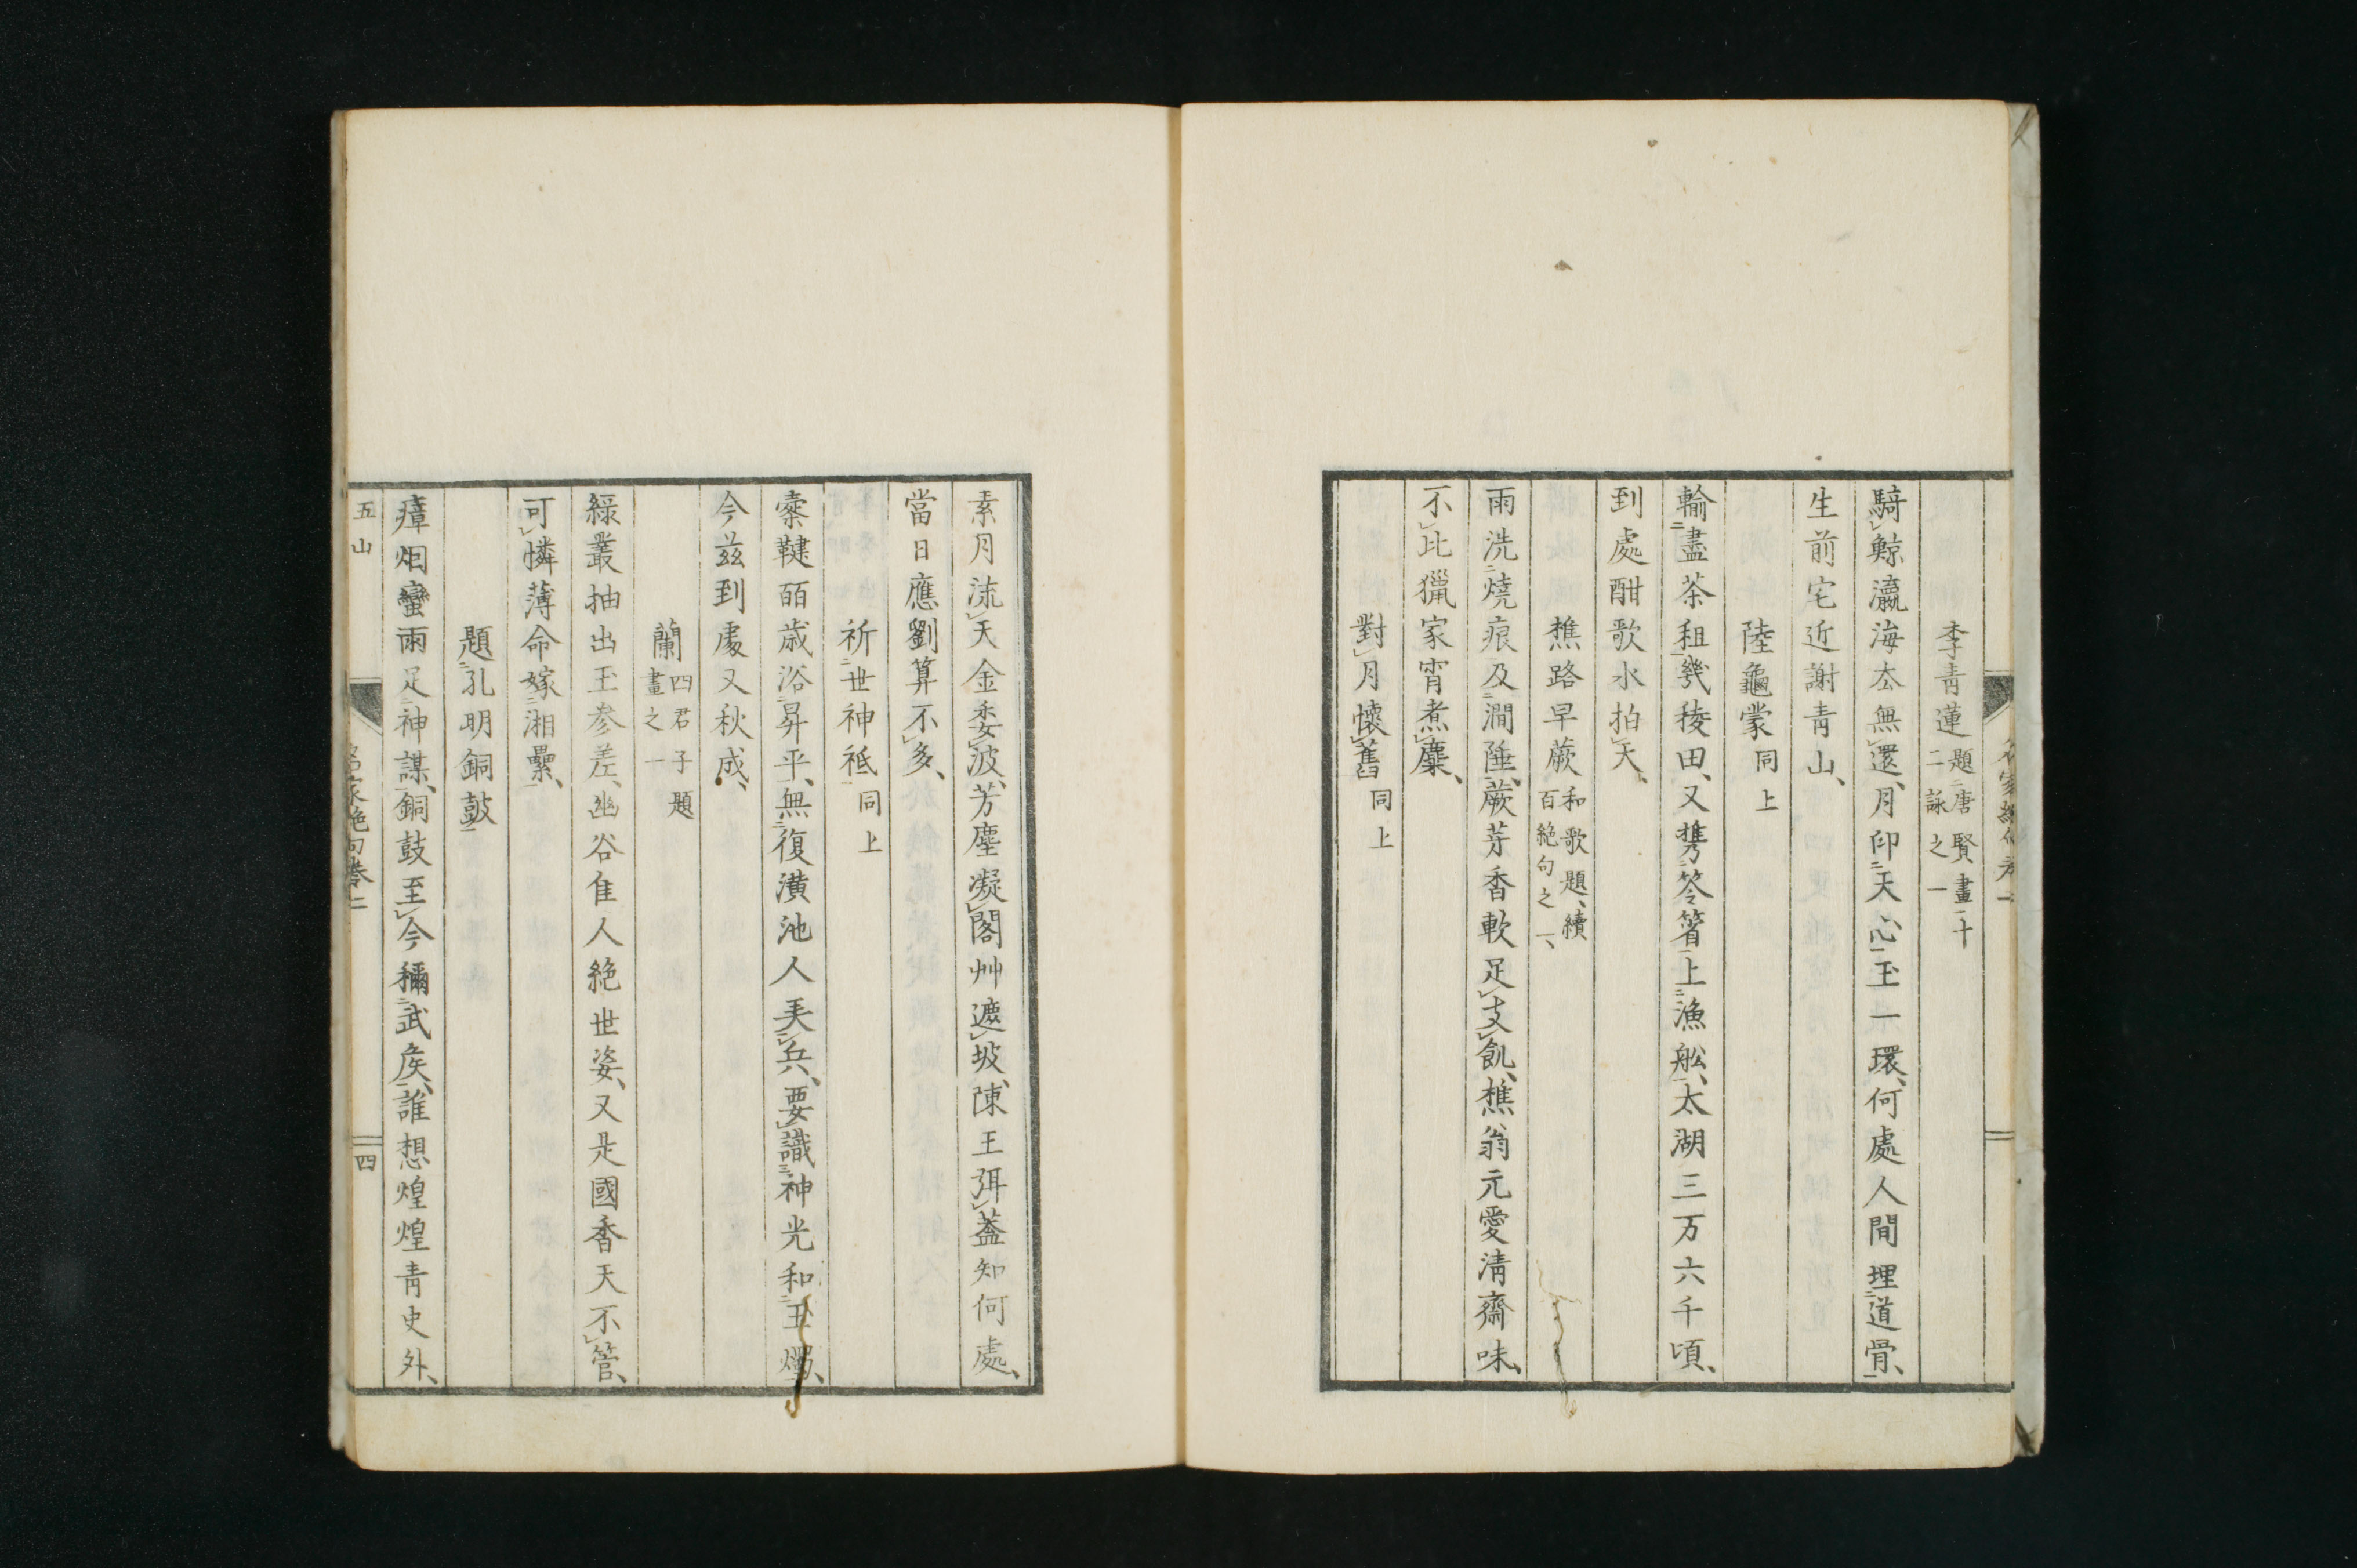 李青蓮 題唐賢畫十二詠之一
騎鯨瀛海去無還、月印天心玉一環、何處人間埋道骨、
生前宅近謝青山、
陸龜蒙 同上
輸盡茶租幾稜田、又携笭箵上漁舩、太湖三万六千頃、
到處酣歌水拍天、
樵路早蕨 和歌題、續百絶句之一、
雨洗燒痕及澗陲、蕨芽香軟足支飢、樵翁元愛淸齋味、
不比獵家宵煮麋、
對月懷舊 同上
素月流天金委波、芳塵凝閣艸遮坡、陳王弭蓋知何處、
當日應劉算不多、
祈世神祇 同上
櫜鞬百歳浴昇平、無復潢池人弄兵、要識神光和玉燭、
今茲到處又秋成、
蘭 四君子題畫之一
緑叢抽出玉參差、幽谷佳人絶世姿、又是國香天不管、
可憐薄命嫁湘纍、
題孔明銅鼓
瘴烟蠻雨足神謀、銅鼓至今稱武矦、誰想煌煌青史外、
五山
名家絶句卷二
四